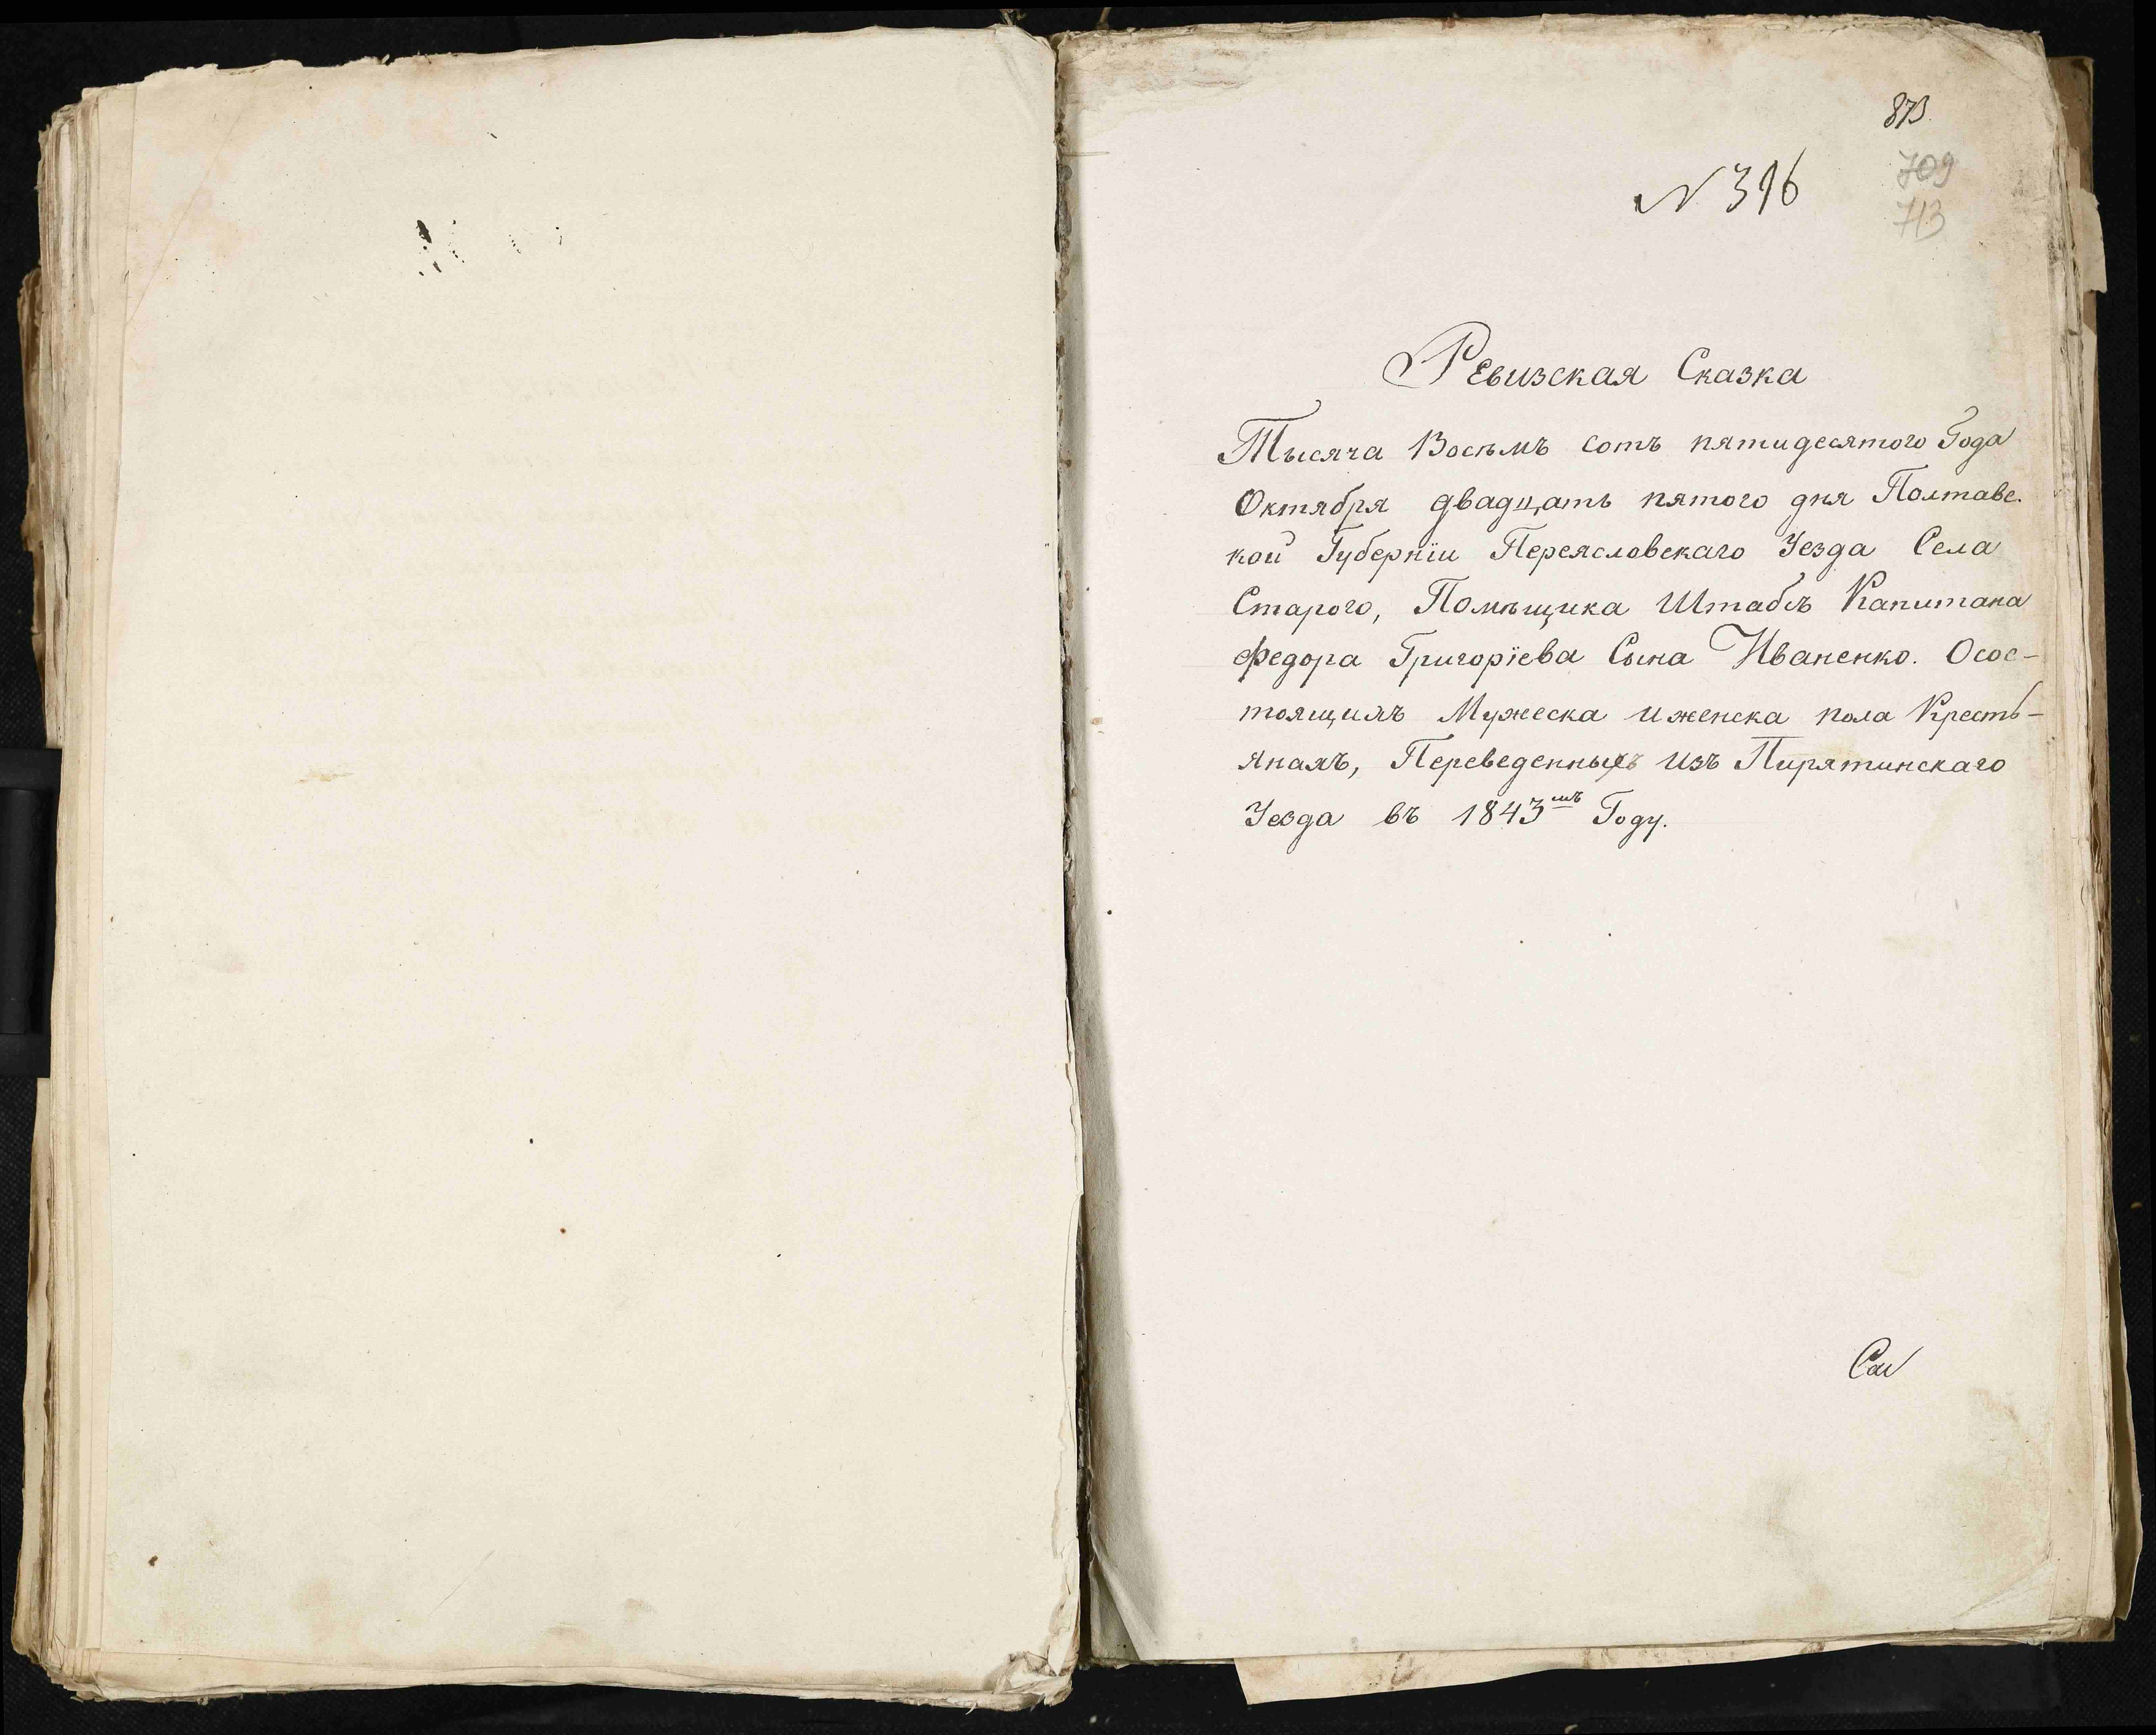 873
N 396
709
713
Ревизская Сказка
Тысяча Восѣмъ сотъ пятидесятого Года
Октября двадцать пятого дня Полтавс.
кой Губерніи Переясловскаго Уезда Села
Старого, Помѣщика Штабсъ Капитана
Федора Григоріева Сына Иваненко. Осос-
тоящихъ Мужеска иженска пола Кресть-
янахъ, Переведенныхъ изъ Пирятинскаго
Уезда въ 1843мъ Году.